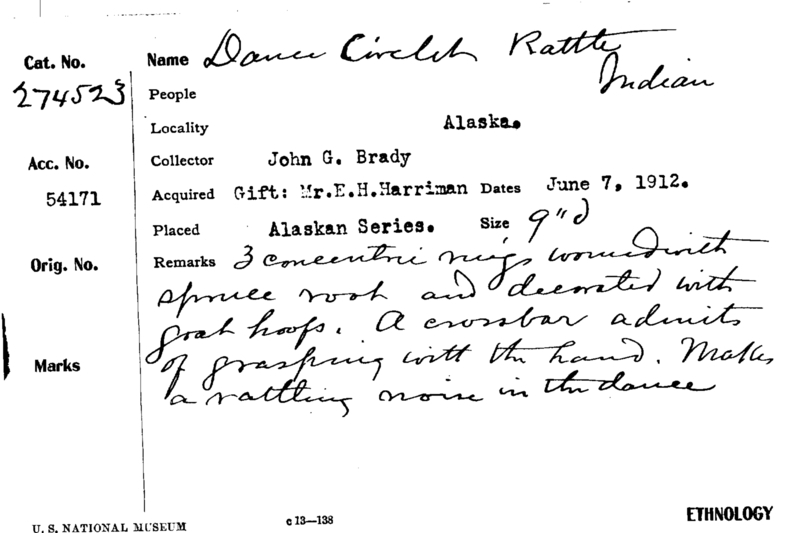 Cat. No. Name Dance Circlet Rattle
274523 Indian
People
Locality Alaska.
Acc. No. Collector John G. Brady
54171 Acquired Gift: Mr.E.H.Harriman Dates June 7, 1912.
Placed Alaskan Series. Size 9"d
Orig. No. Remarks 3 concentric rings wound with
spruce root and decorated with
goat hoofs. A crossbar admits
Marks of grasping with the hand. Makes
a rattling noise in the dance
U. S. NATIONAL MUSEUM c 13—138 ETHNOLOGY